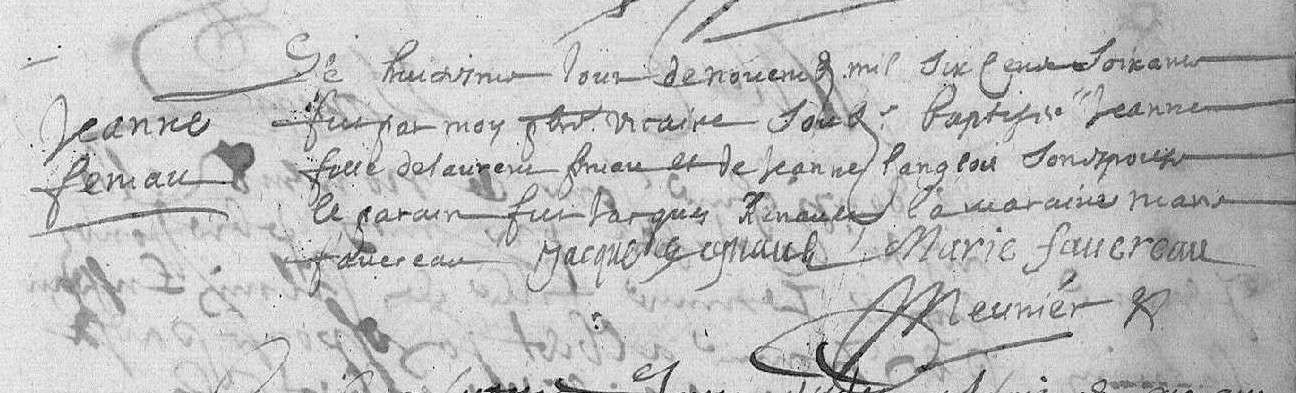 Jeanne
feniau
Le huictiesme Jour de novemb mil Six Cens Soixante
fut par moy pbre vicaire Soubs. baptisée Jeanne
fille de laurent feniau et de Jeanne langlois Son espouse
le parain fut Jacques Renault la maraine marie
favereau Jacques Regnault Marie favereau
Meunier